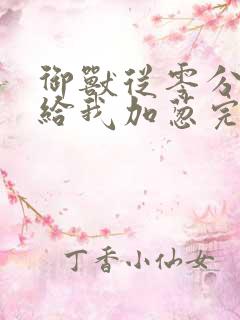 御獸從零分
給我加蔥完
丁香小仙女